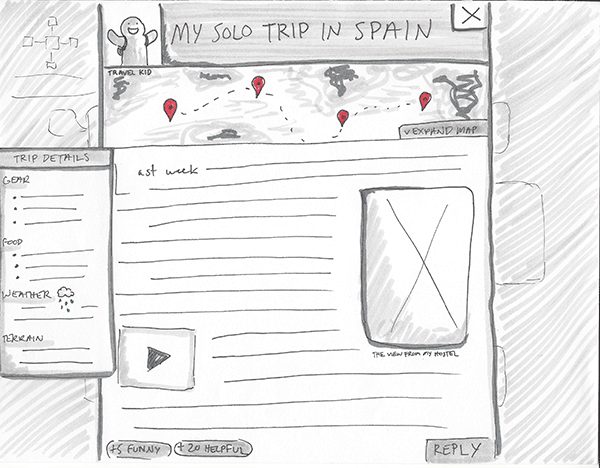 MY SOLO TRIP IN SPAIN
TRAVEL KID
v EXPAND MAP
TRIP DETAILS
GEAR
FOOD
WEATHER
TERRAIN
Last week
THE VIEW FROM MY HOSTEL
+5 FUNNY
+20 HELPFUL
REPLY